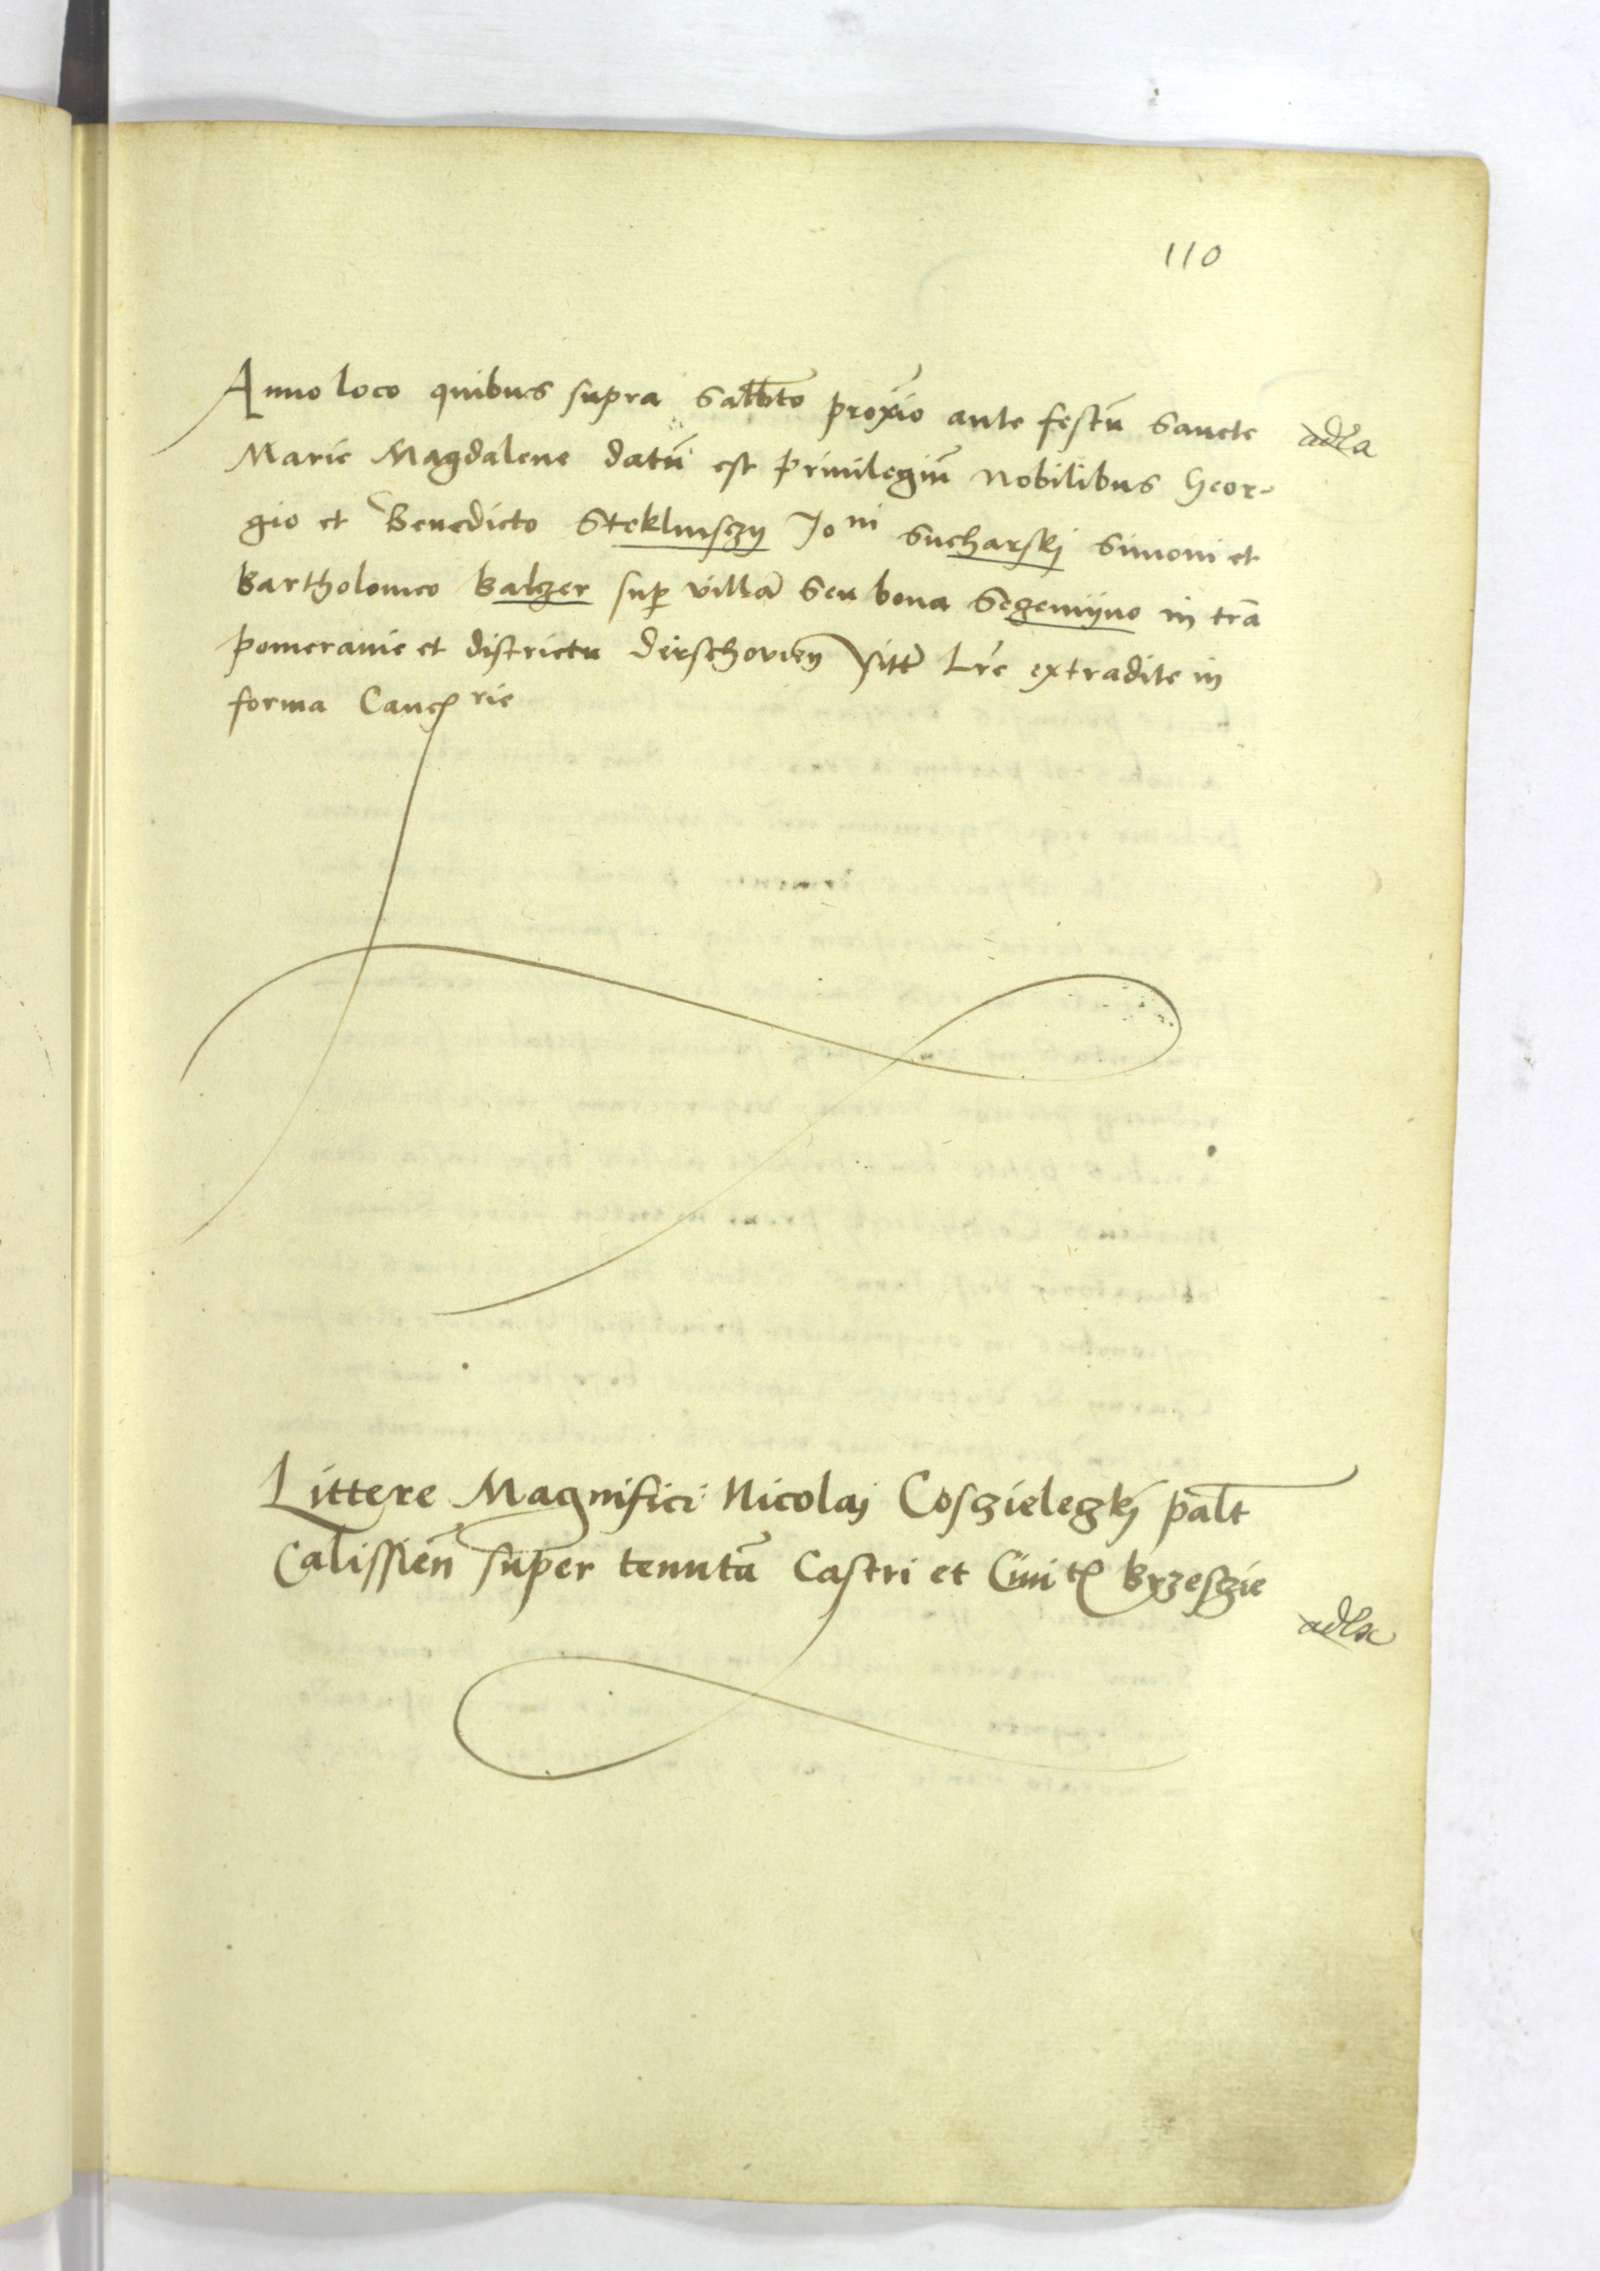 110
Anno loco quibus supra Sabbto proxio ante festũ Sancte
Marie Magdalene datũ est priuilegiũ Nobilibus Geor-
gio et Benedicto Steklinsczy Joni Sucharskj Simoni et
Bartholomeo Balzer sup villã Seu bona Segemiyno in trã
Pomeranie et districtu Dirschovien Sitt Lrẽ extradite in
forma Canc rie
Littere Magnifici Nicolaj Cosczieleczkj palt
Calissień super tenutã Castri et Ciuit Brzesczie